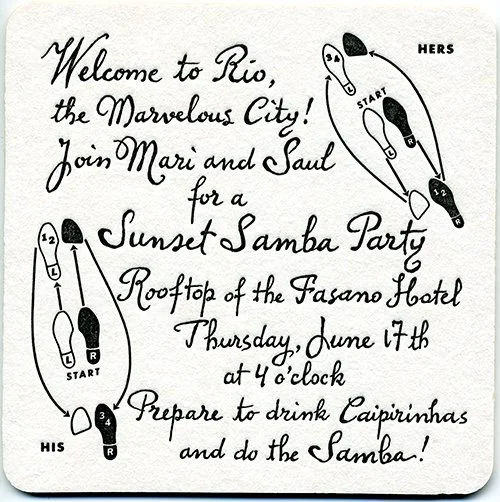 Welcome to Rio,
the Marvelous City!
Join Mari and Saul
for a
Sunset Samba Party
Rooftop of the Fasano Hotel
Thursday, June 17th
at 4 o'clock
Prepare to drink Caipirinhas
and do the Samba!
HERS
3 4
L
START
L
R
1 2
R
1 2
L
L
R
START
3 4
R
HIS